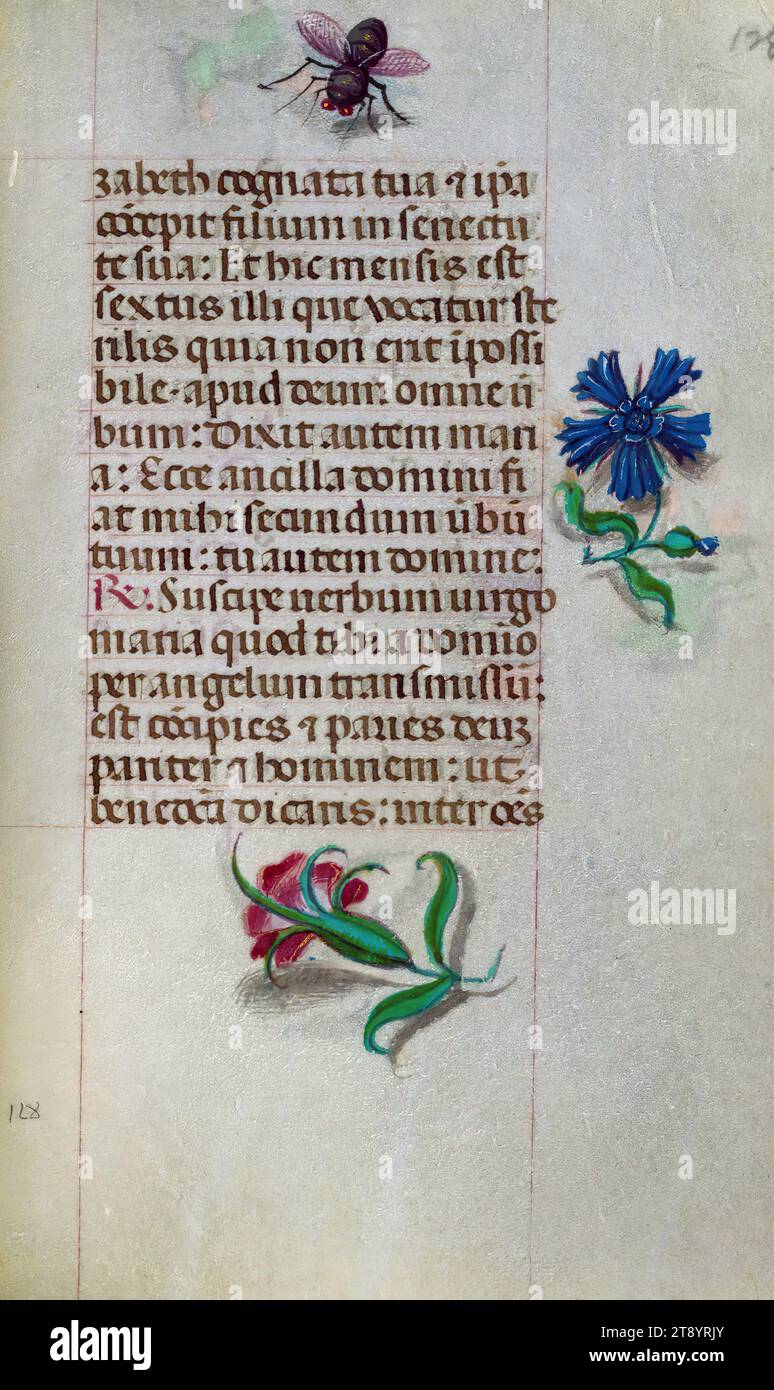 128
zabeth cognata tua ⁊ ip̄a
cōcepit filium in senectu
te sua: Et hic mensis est
sextus illi que vocatur ste
rilis quia non erit īpossi
bile apud deum omne ū
bum: Dixit autem mari
a: Ecce ancilla domini fi
at mihi secundum ūbū
tuum: tu autem domine:
R: Suscipe uerbum uirgo
maria quod tibi a domīo
per angelum transmissū:
est cōcipies ⁊ paries deuʒ
pariter ⁊ hominem: ut
benedcā dicaris: inter oēs
128
alamy
Image ID: 2T8YRJY
www.alamy.com